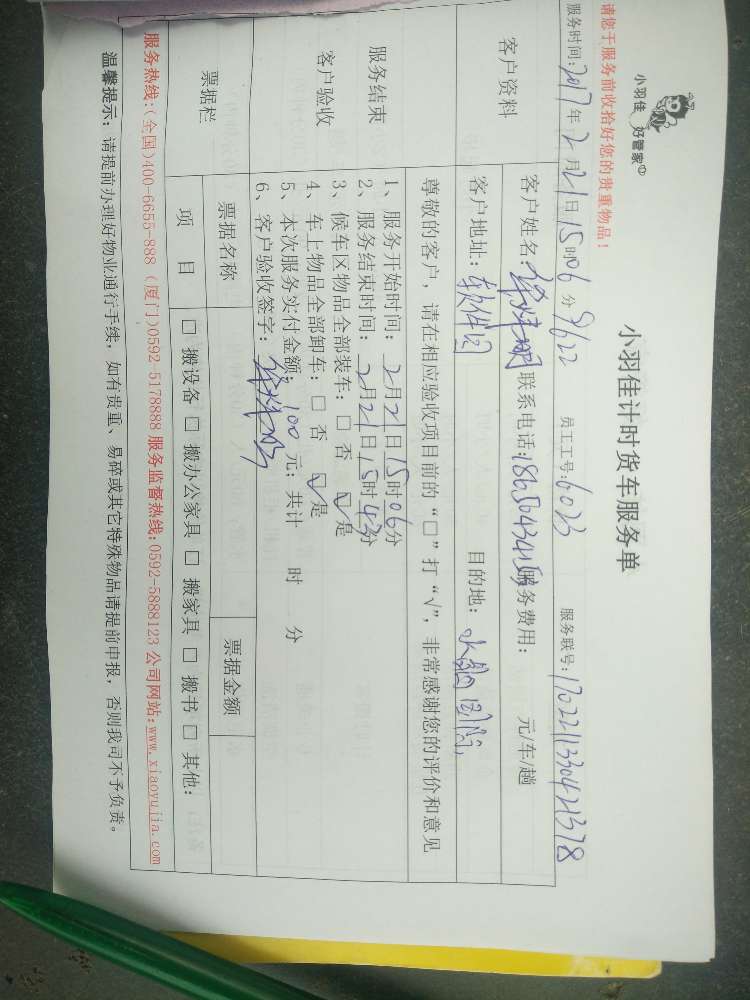 小羽佳 好管家
小羽佳计时货车服务单
请您于服务前收拾好您的贵重物品!
服务时间:2017年2月21日15时06分 9622 员工工号:6023 服务联号:1702211330421378
客户资料
客户姓名: 联系电话: 服务费用: 元/车/趟
客户地址:软件园 目的地:
尊敬的客户,请在相应验收项目前的“□”打“√”,非常感谢您的评价和意见
服务结束
客户验收
1、服务开始时间:2月21日15时06分
2、服务结束时间:2月21日15时43分
3、候车区物品全部装车:□ 否 ☑ 是
4、车上物品全部卸车:□ 否 ☑ 是
5、本次服务实付金额:100元;共计 时 分
6、客户验收签字:
票据栏 票据名称 票据金额
项 目 □ 搬设备 □ 搬办公家具 □ 搬家具 □ 搬书 □ 其他:
服务热线:(全国)400-6655-888 (厦门)0592-5178888 服务监督热线:0592-5888123 公司网站:www.xiaoyujia.com
温馨提示:请提前办理好物业通行手续,如有贵重、易碎或其它特殊物品请提前申报,否则我司不予负责。